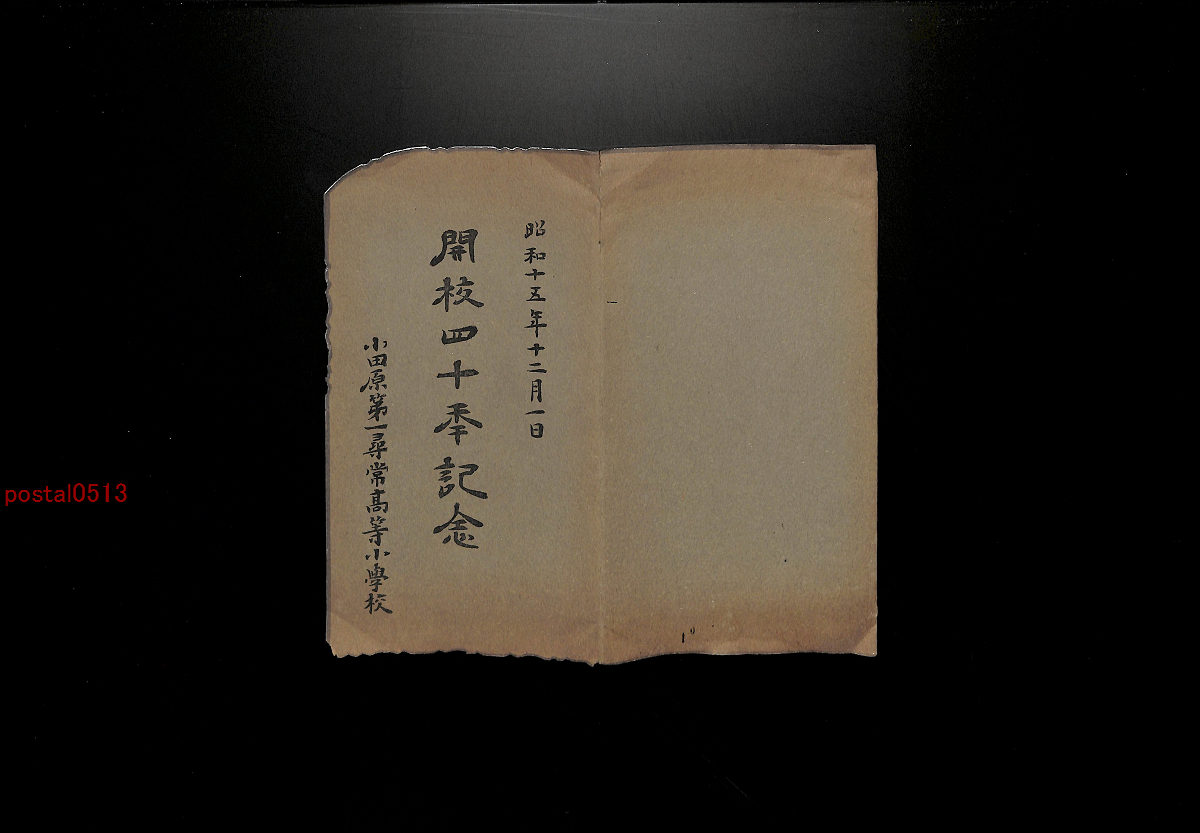 昭和十五年十二月一日
開校四十季記念
小田原第一尋常高等小學校
postal0513